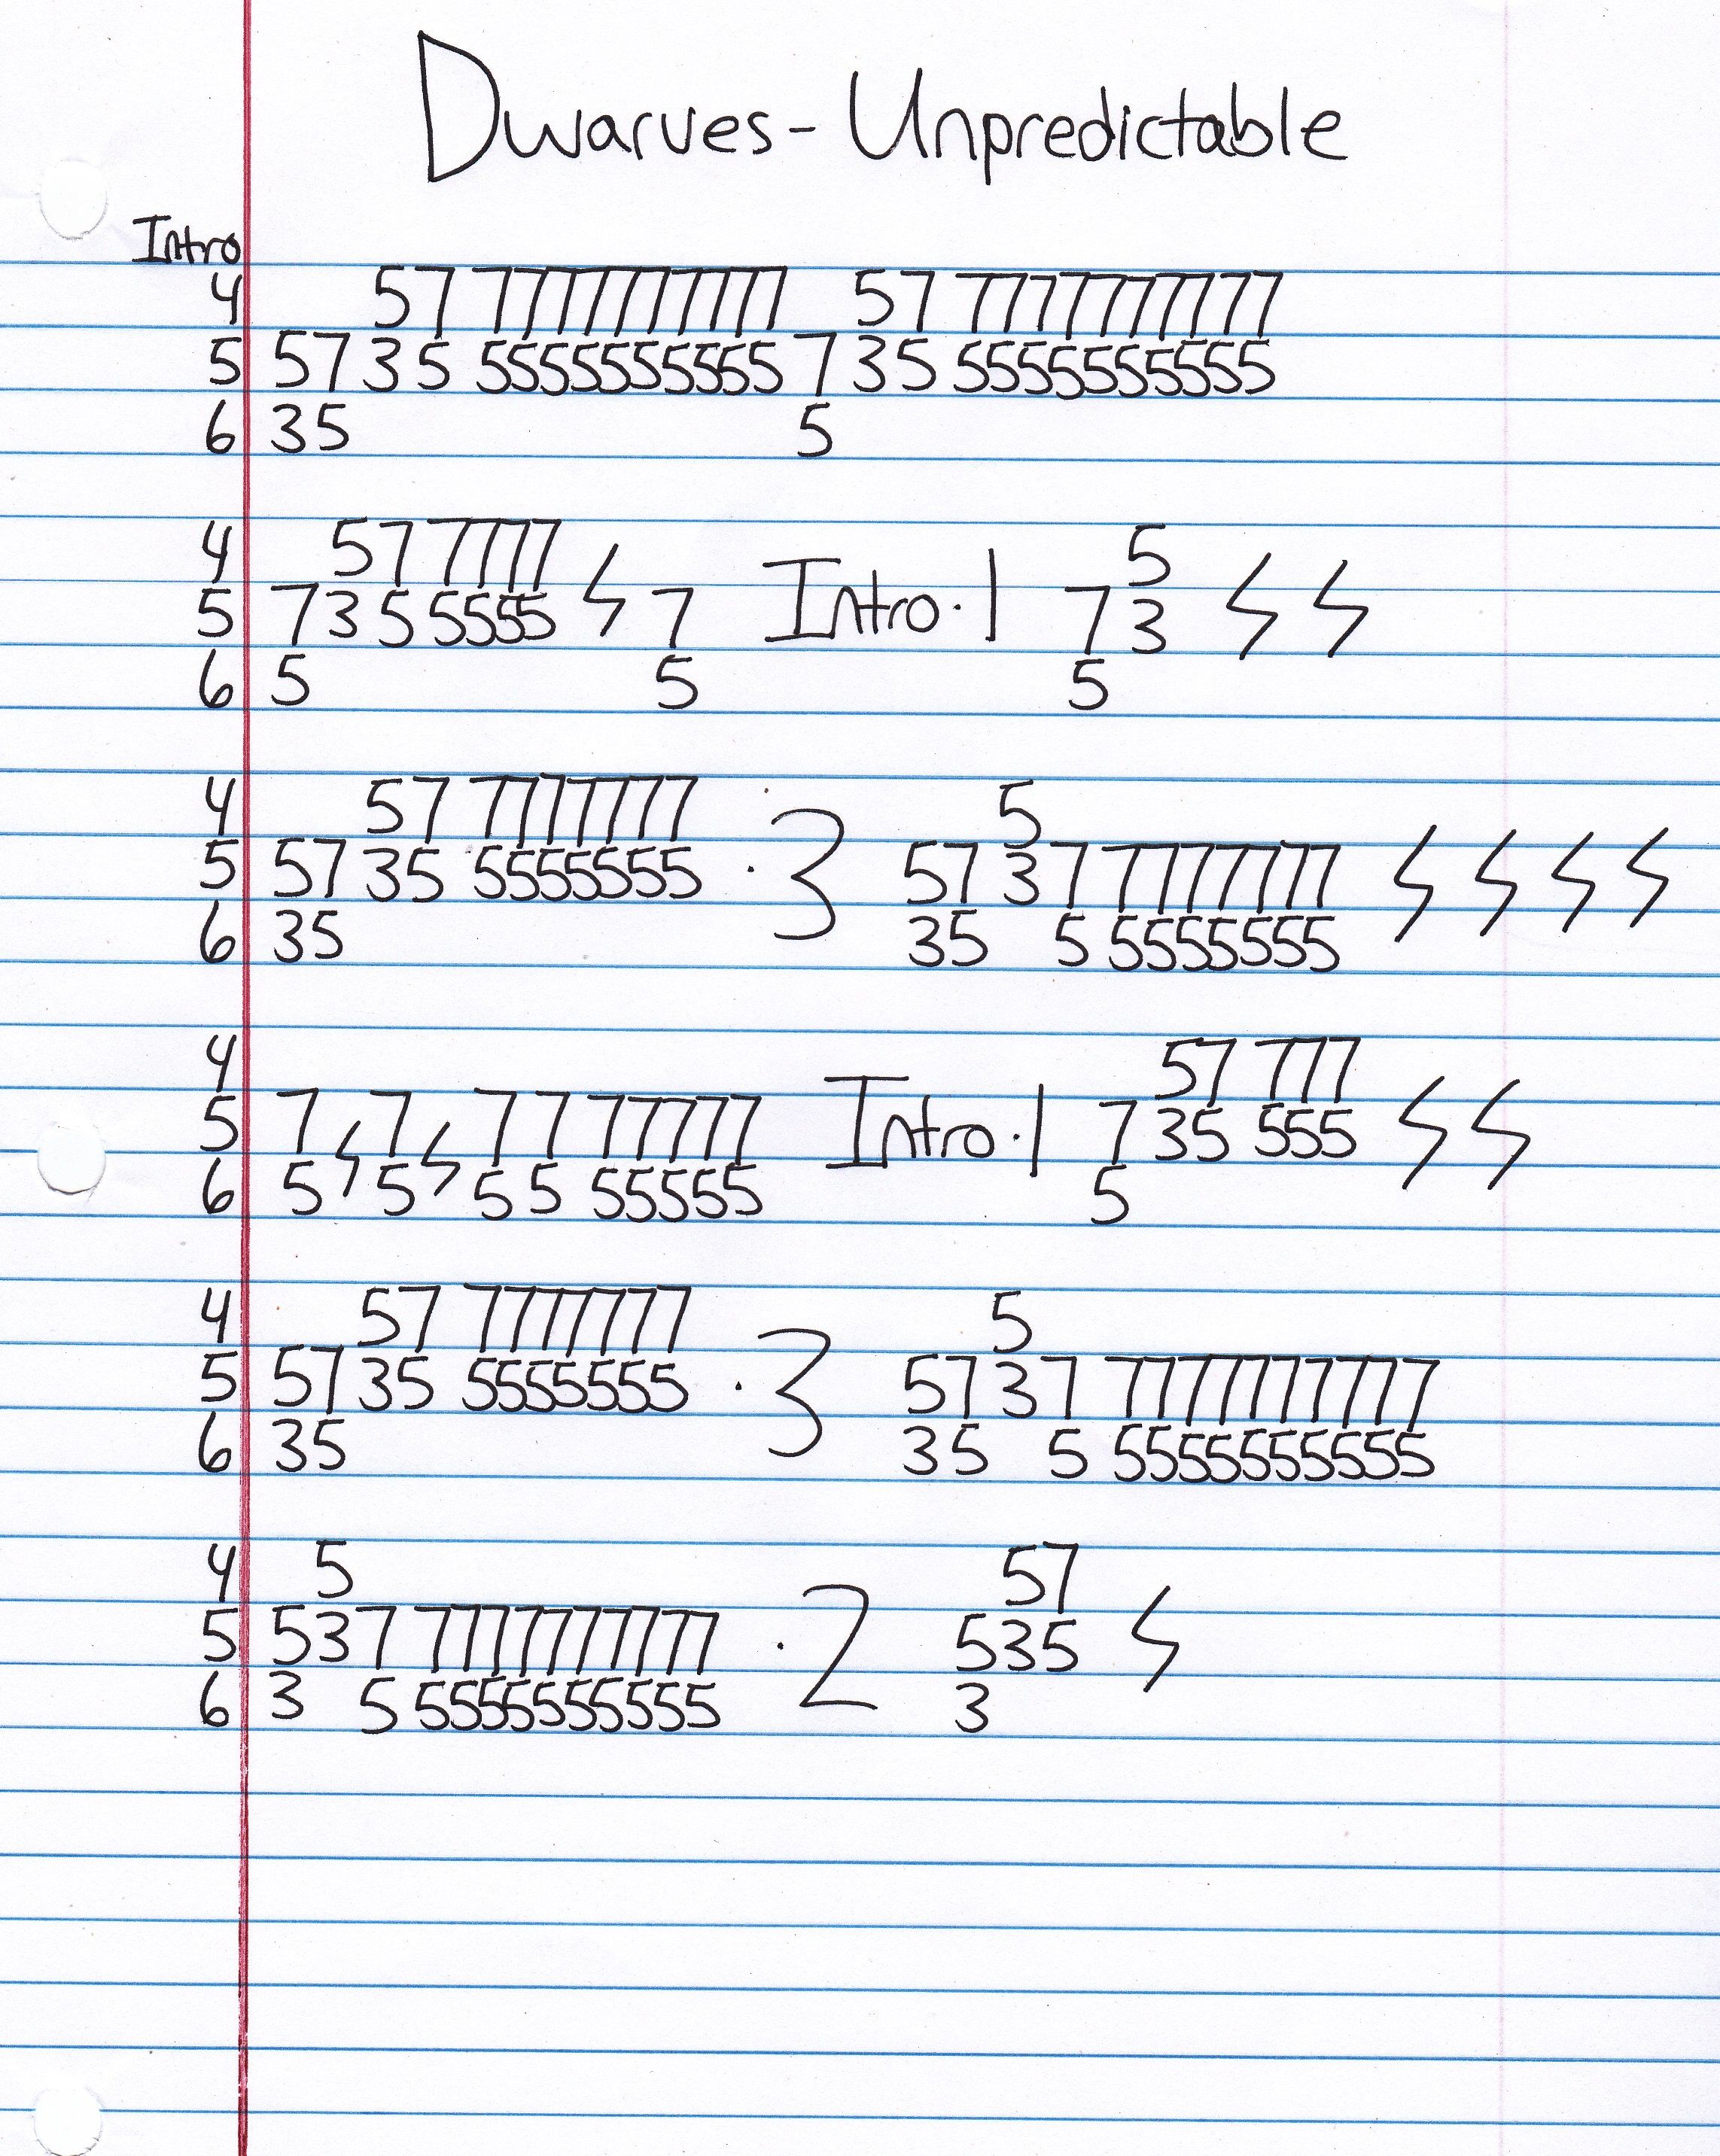 Dwarves - Unpredictable
Intro
4 57 7777777777 57 7777777777
5 57 35 5555555555 7 35 5555555555
6 35 5
4 57 7777 5
5 7 3 5 5555 ϟ 7 Intro·1 7 3 ϟ ϟ
6 5 5 5
4 57 7777777 5
5 57 35 5555555 ·3 57 3 7 7777777 ϟ ϟ ϟ ϟ
6 35 35 5 5555555
4 57 777
5 7 ϟ 7 ϟ 7 7 77777 Intro·1 7 35 555 ϟ ϟ
6 5 5 5 5 55555 5
4 57 7777777 5
5 57 35 5555555 ·3 57 3 7 7777777777
6 35 35 5 5555555555
4 5 57
5 537 7777777777 ·2 535 ϟ
6 3 5 5555555555 3